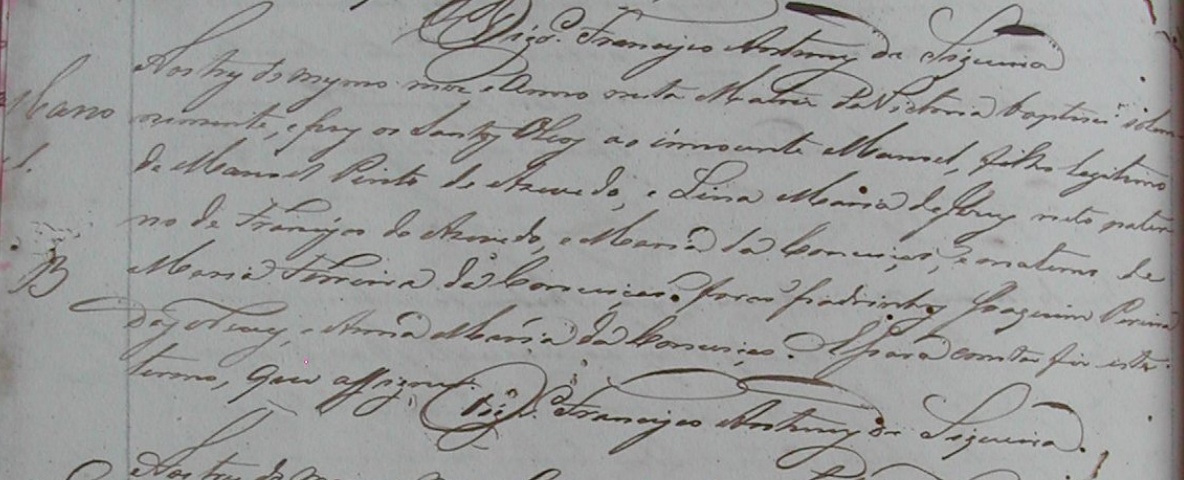 Vigrº. Francisco Antunes de Siqueira
Aos tres do mesmo mez e Anno nesta Matriz da Victoria baptisei solem-
Mano nemente, e puz os Santos Oleos ao innocente Manoel, filho legitimo
el. de Manoel Pinto de Azevedo, e Lina Maria de Jesus neto pater-
no de Francisco de Azevedo, e Maria da Conceição, e materno de
B Maria Ferreira da Conceição. forão padrinhos Joaquim Pereira
das Neves, e Anna Maria da Conceição. E para constar fiz este
termo, que assignei.
Vigrº. Francisco Antunes de Siqueira.
Aos tres do